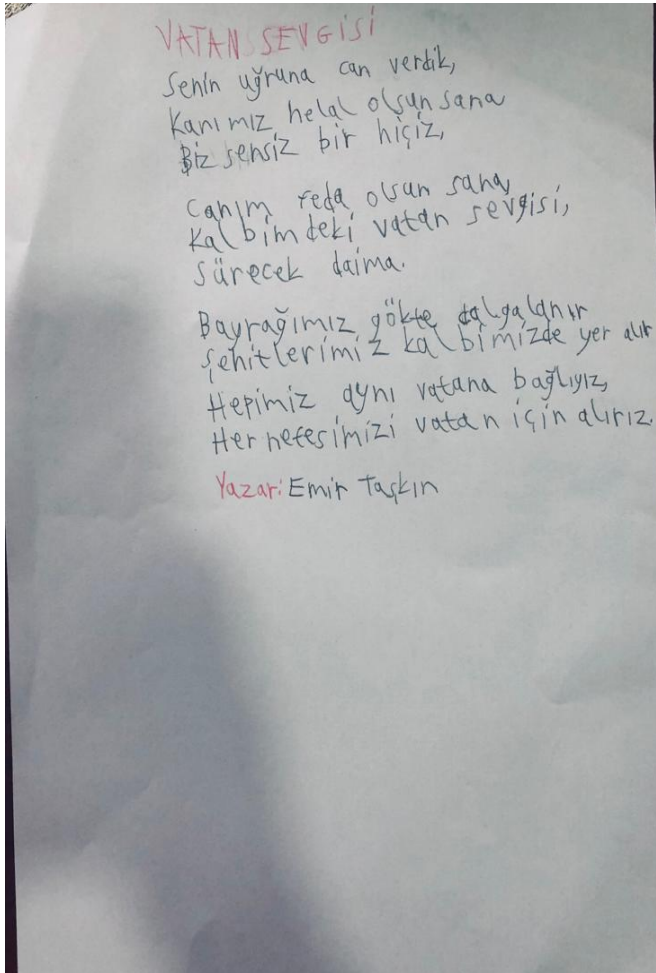 VATAN SEVGİSİ
Senin uğruna can verdik,
Kanımız helal olsun sana
Biz sensiz bir hiçiz,
Canım feda olsun sana,
Kalbimdeki vatan sevgisi,
Sürecek daima.
Bayrağımız gökte dalgalanır
Şehitlerimiz kalbimizde yer alır
Hepimiz aynı vatana bağlıyız,
Her nefesimizi vatan için alırız.
Yazar: Emir Taşkın